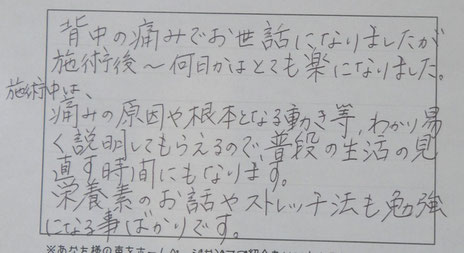 背中の痛みでお世話になりましたが
施術後〜何日かはとても楽になりました。
施術中は、
痛みの原因や根本となる動き等、わかり易
く説明してもらえるので、普段の生活の見
直す時間にもなります。
栄養素のお話やストレッチ法も勉強
になる事ばかりです。
※あなた様の声をホーム